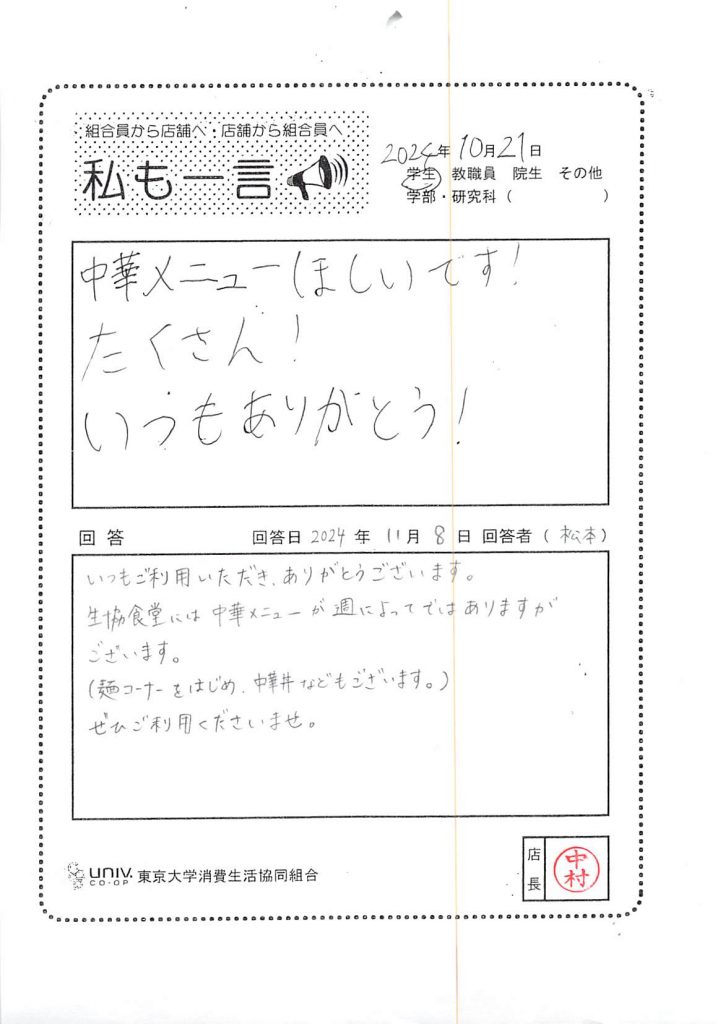 組合員から店舗へ・店舗から組合員へ
私も一言
2024年10月21日
学生 教職員 院生 その他
学部・研究科（ ）
中華メニュー(ほしい)です!
たくさん!
いつもありがとう!
回答 回答日 2024 年 11月 8 日 回答者（松本）
いつもご利用いただき、ありがとうございます。
生協食堂には中華メニューが週によってではありますが
ございます。
(麺コーナーをはじめ、中華丼などもございます。)
ぜひご利用くださいませ。
UNIV.
CO-OP
東京大学消費生活協同組合
店長
中村